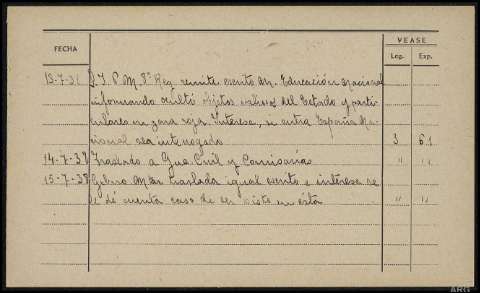 VEASE
FECHA
Leg. Exp.
13-7-38 J. S. P. M. 5ª Reg. remite escrito Mº Educación Nacional
informando ocultó objetos valiosos del Estado y parti-
culares en zona roja. Interesa, si entra España Na-
cional sea interrogado 3 61
14-7-38 Traslado a Gua Civil y Comisarías " "
15-7-38 Gobno Mtar traslada igual escrito e interesa se
le dé cuenta caso de ser visto en ésta " "